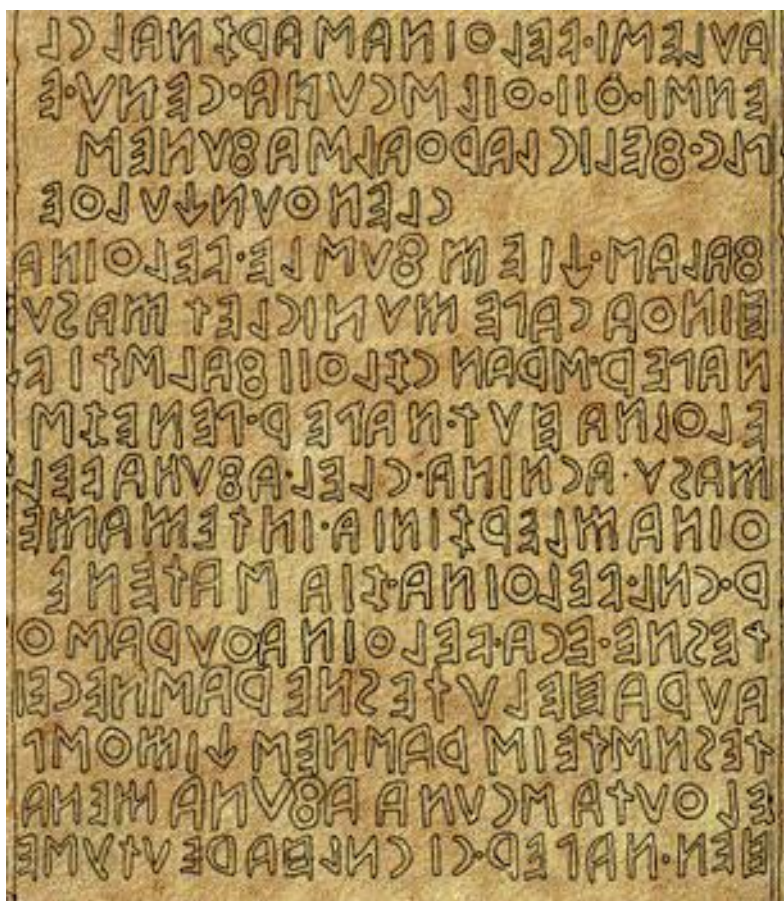 𐌀𐌖𐌋𐌄𐌑𐌉·𐌅𐌄𐌋𐌈𐌉𐌍𐌀𐌑𐌀𐌓𐌆𐌍𐌀𐌋𐌂𐌋
𐌄𐌍𐌑𐌉·𐌈𐌉𐌉·𐌈𐌉𐌋𐌑𐌂𐌖𐌍𐌀·𐌂𐌄𐌍𐌖·𐌄
𐌐𐌋𐌂·𐌚𐌄𐌋𐌉𐌂𐌋𐌀𐌓𐌈𐌀𐌋𐌑𐌀𐌚𐌖𐌍𐌄𐌑
𐌂𐌋𐌄𐌍𐌈𐌖𐌍𐌙𐌖𐌋𐌈𐌄
𐌚𐌀𐌋𐌀𐌑·𐌙𐌉𐌄𐌌𐌚𐌖𐌑𐌋𐌄·𐌅𐌄𐌋𐌈𐌉𐌍𐌀
𐌇𐌉𐌍𐌈𐌀𐌂𐌀𐌐𐌄𐌌𐌖𐌍𐌉𐌂𐌋𐌄𐌕𐌌𐌀𐌔𐌖
𐌍𐌀𐌐𐌄𐌓·𐌑𐌓𐌀𐌍𐌂𐌆𐌋𐌈𐌉𐌉𐌚𐌀𐌋𐌑𐌕𐌉𐌅
𐌄𐌋𐌈𐌉𐌍𐌀𐌇𐌖𐌕·𐌍𐌀𐌐𐌄𐌓·𐌐𐌄𐌍𐌄𐌆𐌑
𐌌𐌀𐌔𐌖·𐌀𐌂𐌍𐌉𐌍𐌀·𐌂𐌋𐌄𐌋·𐌀𐌚𐌖𐌍𐌀𐌅𐌄𐌋
𐌈𐌉𐌍𐌀𐌌𐌋𐌄𐌓𐌆𐌉𐌍𐌉𐌀·𐌉𐌍𐌕𐌄𐌌𐌀𐌌𐌄
𐌓·𐌂𐌍𐌋·𐌅𐌄𐌋𐌈𐌉𐌍𐌀·𐌆𐌉𐌀𐌑𐌀𐌕𐌄𐌍𐌄
𐌕𐌄𐌔𐌍𐌄·𐌄𐌂𐌀·𐌅𐌄𐌋𐌈𐌉𐌍𐌀𐌈𐌖𐌓𐌀𐌑𐌈
𐌀𐌖𐌓𐌀𐌇𐌄𐌋𐌖𐌕𐌄𐌔𐌍𐌄𐌓𐌀𐌑𐌍𐌄𐌂𐌄𐌉
𐌕𐌄𐌔𐌍𐌑𐌕𐌄𐌉𐌑𐌓𐌀𐌑𐌍𐌄𐌑𐌙𐌉𐌌𐌈𐌑𐌐
𐌄𐌋𐌈𐌖𐌕𐌀𐌑𐌂𐌖𐌍𐌀𐌀𐌚𐌖𐌍𐌀𐌌𐌄𐌍𐌀
𐌇𐌄𐌍·𐌍𐌀𐌐𐌄𐌓·𐌂𐌉𐌂𐌍𐌋𐌇𐌀𐌓𐌄𐌖𐌕𐌖𐌑𐌄